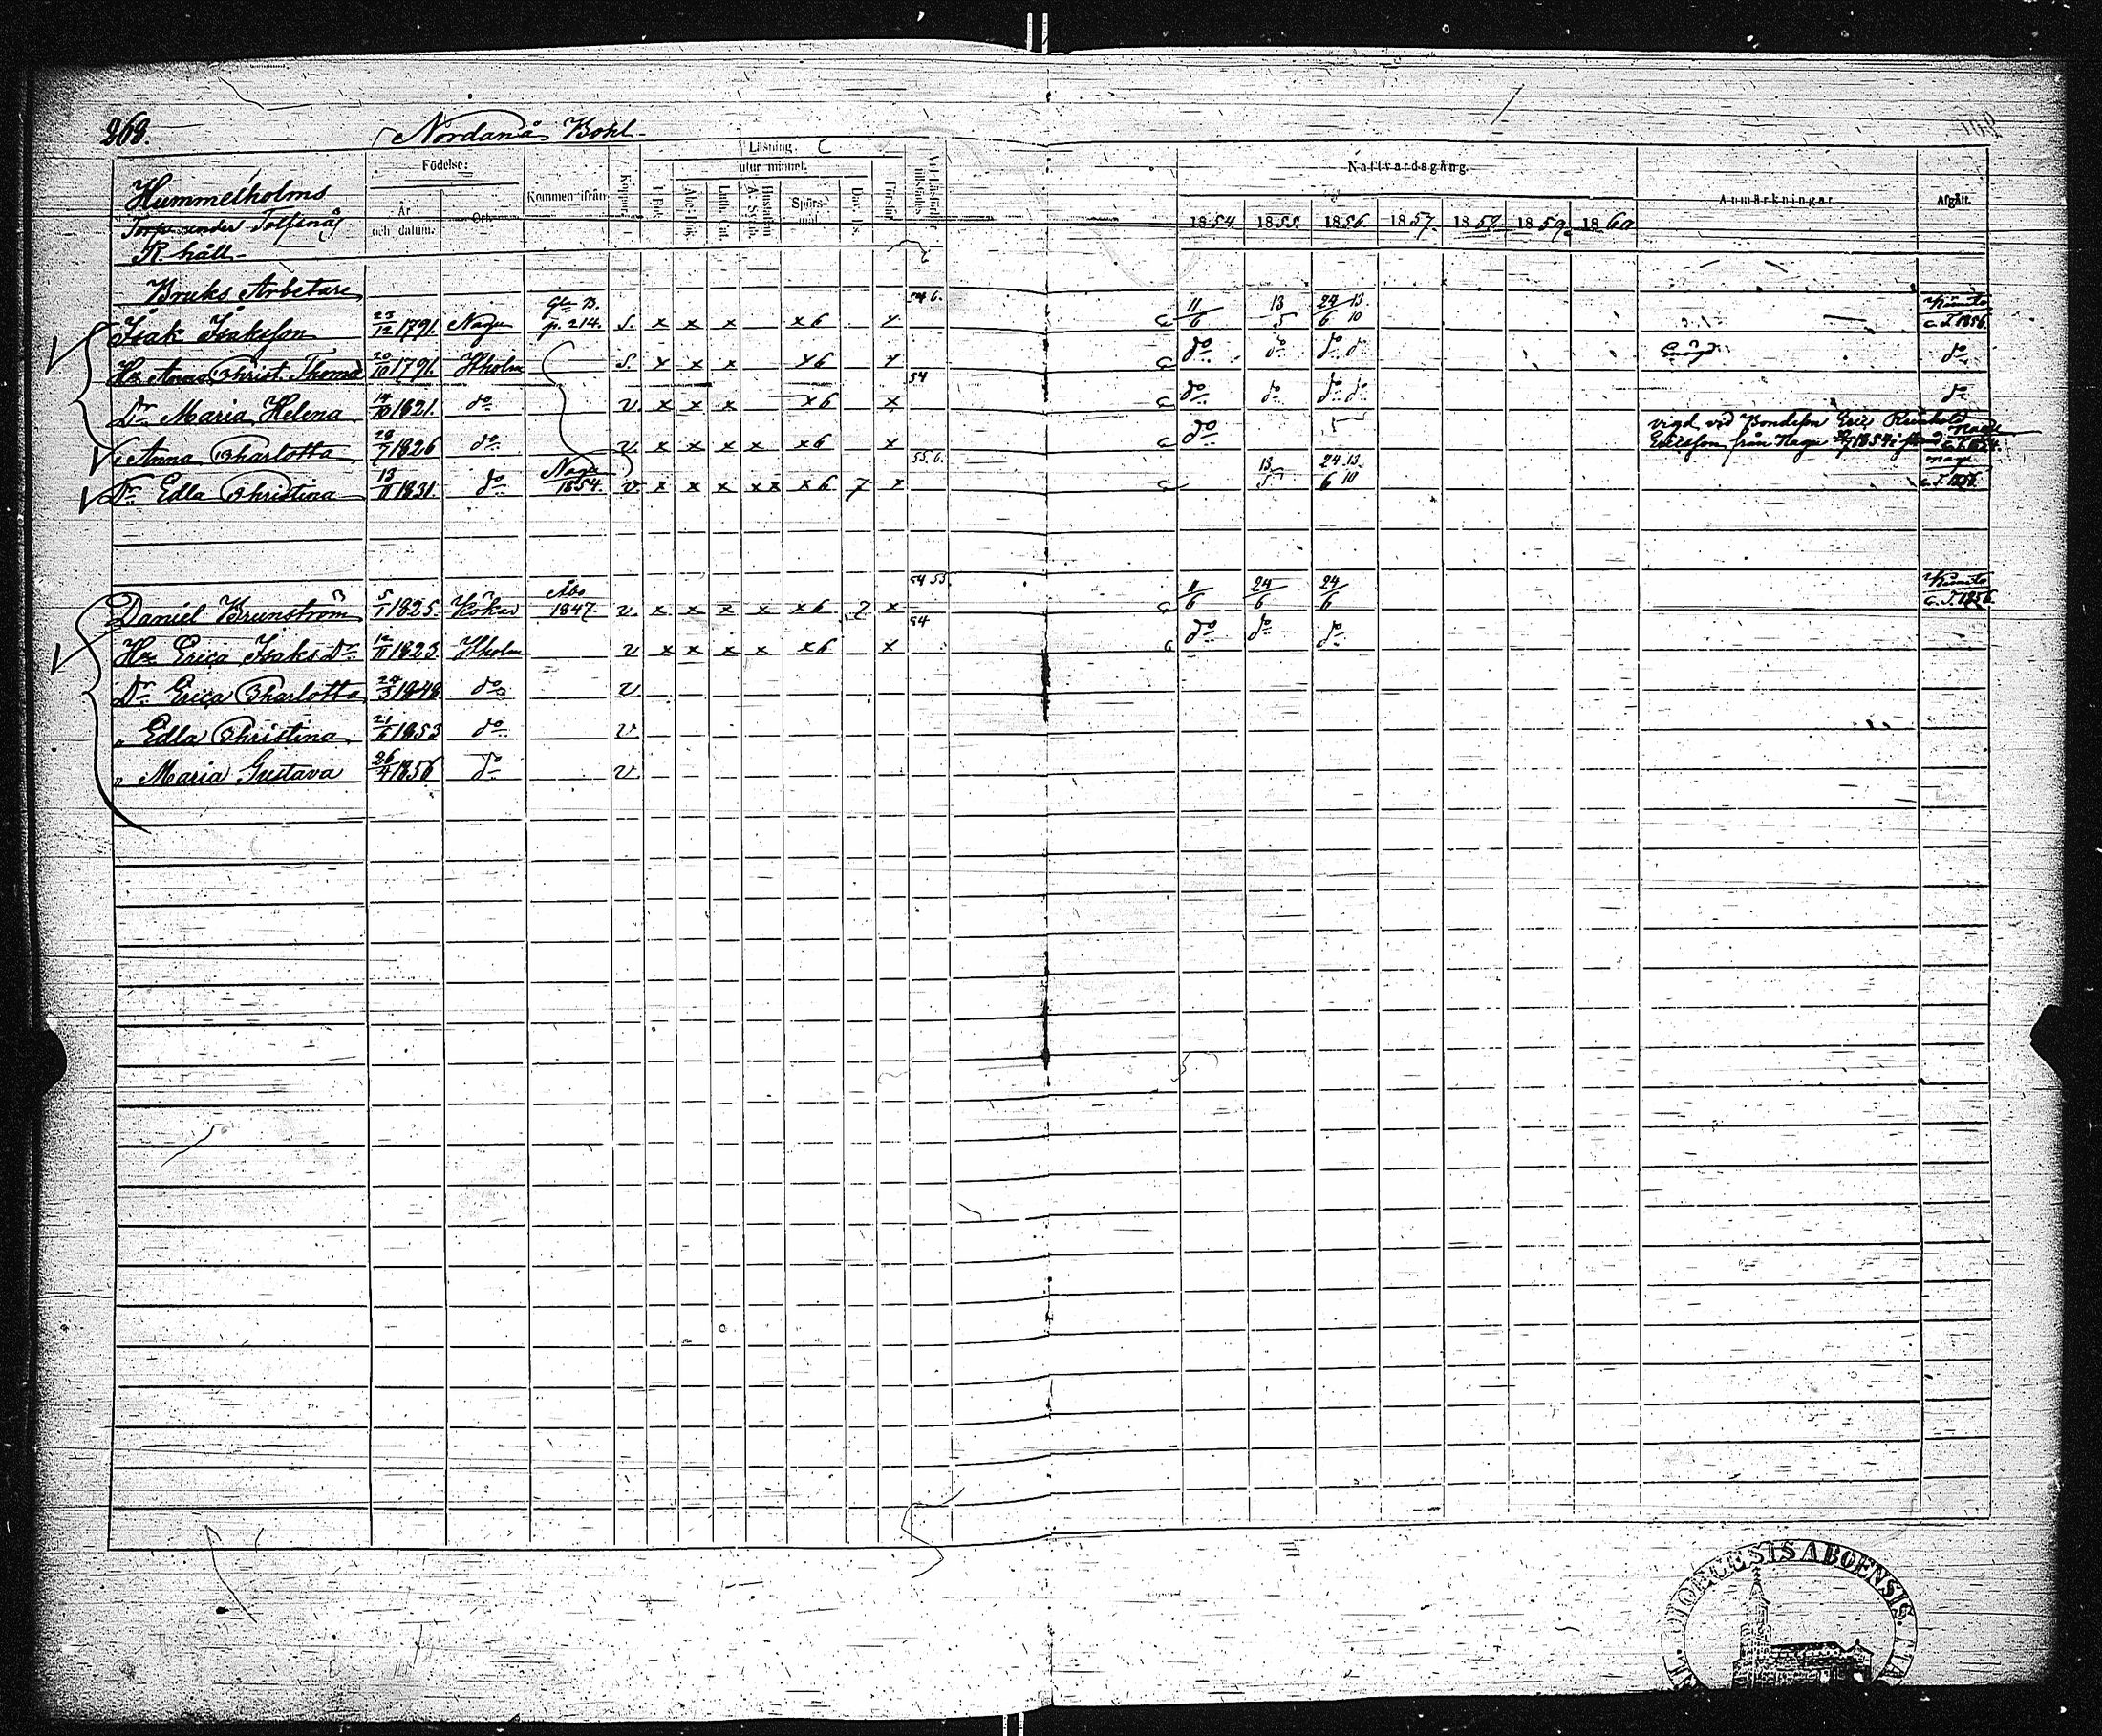 268. Nordanå Bohl.
Födelse: Läsning. Nattvardsgång.
utur minnet.
Hummelholms
År och datum. Ort. Kommen ifrån Koppor. I Bok. Abc-Bok. Luth. Cat. Hustaflan A. Symb. Spörs-mål. Dav. Ps. Förstår. 1854. 1855. 1856. 1857. 1858. 1859. 1860 Anmärkningar. Afgått.
Torp under Tolfsnäs
R. håll.
Bruks Arbetare
Isak Isaksson 23/12 1791. Nagu Gl. B. p. 214. S. x x x x6 x 54 6. c 11/6 13/5 24/6 13/10 Kimito c. J. 1856.
Hu Anna Christ. Thomæ 20/10 1791. Hholm S. x x x x6 x c do do do do Enögd do
Dr Maria Helena 14/10 1821. do v. x x x x6 x 54 c do do do do do
„ Anna Charlotta 28/7 1826 do v. x x x x x6 x c do vigd vid Bondesn Eric Reinhold
Ericsson från Nagu 1854 Nagu 1854.
Dr Edla Christina 13/11 1831. do Nagu 1854. v. x x x xx x6 7 x 55. 6. c 13/5 24/6 13/10 Nagu c. J. 1856.
Daniel Brunström 5/1 1825. Kökar Åbo 1847. v. x x x x x6 7 x 54 55. c 11/6 24/6 24/6 Kimito c. J. 1856.
Hu Erica Isaks Dr 12/11 1823. Hholm v x x x x x6 x 54 c do do do
Dr Erica Charlotta 24/3 1848. do v
„ Edla Christina 21/6 1853 do v
„ Maria Gustava 26/4 1856 do v
DIOECESIS ABOENSIS